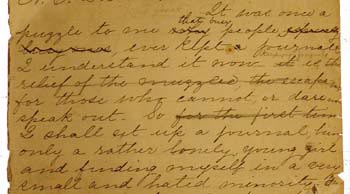 It was once a
that busy
puzzle to me why people,
ever kept a journal
I understand it now it is the
relief of the muzzled, the escape
for those who cannot, or dare
speak out. So for the first time
I shall set up a journal,
only a rather lonely young girl
and finding myself in a very
small and hated minority.